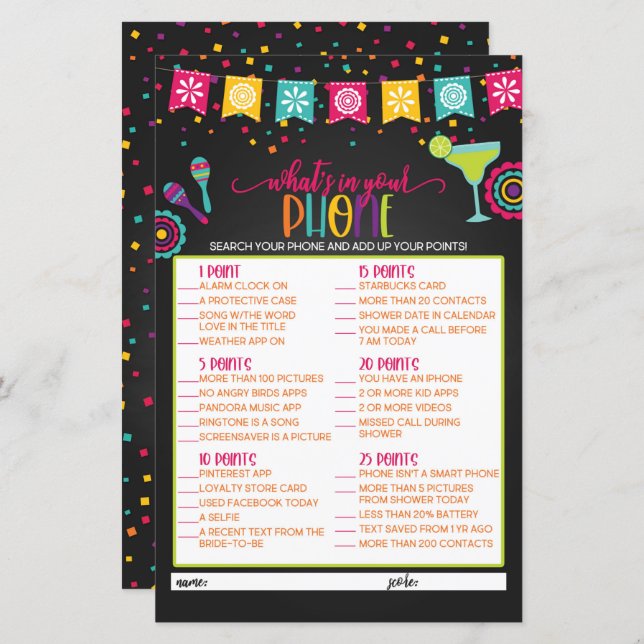 what's in your
PHONE
SEARCH YOUR PHONE AND ADD UP YOUR POINTS!
1 POINT
___ALARM CLOCK ON
___A PROTECTIVE CASE
___SONG W/THE WORD
LOVE IN THE TITLE
___WEATHER APP ON
5 POINTS
___MORE THAN 100 PICTURES
___NO ANGRY BIRDS APPS
___PANDORA MUSIC APP
___RINGTONE IS A SONG
___SCREENSAVER IS A PICTURE
10 POINTS
___PINTEREST APP
___LOYALTY STORE CARD
___USED FACEBOOK TODAY
___A SELFIE
___A RECENT TEXT FROM THE
BRIDE-TO-BE
15 POINTS
___STARBUCKS CARD
___MORE THAN 20 CONTACTS
___SHOWER DATE IN CALENDAR
___YOU MADE A CALL BEFORE
7 AM TODAY
20 POINTS
___YOU HAVE AN IPHONE
___2 OR MORE KID APPS
___2 OR MORE VIDEOS
___MISSED CALL DURING
SHOWER
25 POINTS
___PHONE ISN'T A SMART PHONE
___MORE THAN 5 PICTURES
FROM SHOWER TODAY
___LESS THAN 20% BATTERY
___TEXT SAVED FROM 1 YR AGO
___MORE THAN 200 CONTACTS
name: score: